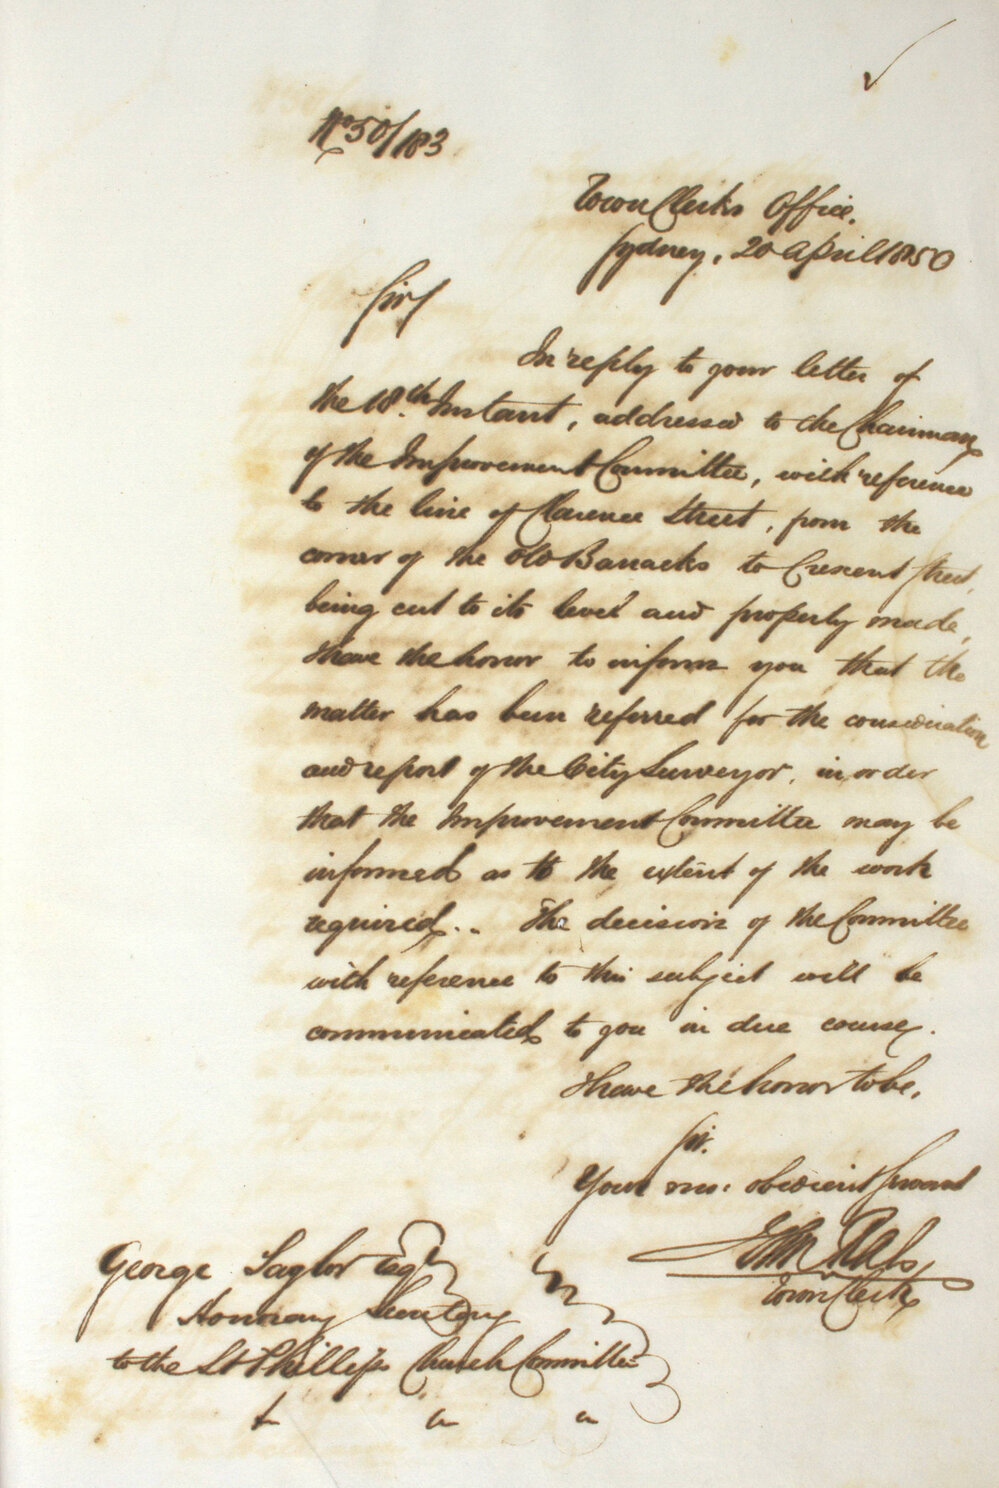 No 50/183
Town Clerks Office.
Sydney, 20 April 1850
Sir,
In reply to your letter of
the 18th Instant, addressed to the Chairman
of the Improvement Committee, with reference
to the line of Clarence Street, from the
corner of the Old Barracks to Crescent Street,
being cut to its level and properly made,
I have the honor to inform you that the
matter has been referred for the consideration
and report of the City Surveyor, in order
that the Improvement Committee may be
informed as to the extent of the work
required.. The decision of the Committee
with reference to this subject will be
communicated to you in due course.
I have the honor to be,
Sir.
Your mo: obedient Servant
Town Clerk
George Taylor Esqr
Honorary Secretary
to the St Phillips Church Committee